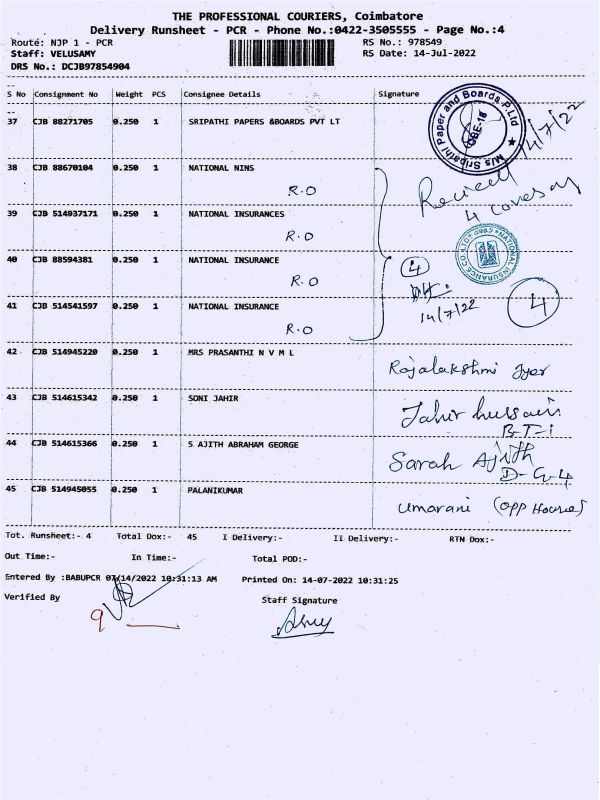 THE PROFESSIONAL COURIERS, Coimbatore
Delivery Runsheet - PCR - Phone No.:0422-3505555 - Page No.:4
Route: NJP 1 - PCR RS No.: 978549
Staff: VELUSAMY RS Date: 14-Jul-2022
DRS No.: DCJB97854904
S No Consignment No Weight PCS Consignee Details Signature
37 CJB 88271705 0.250 1 SRIPATHI PAPERS &BOARDS PVT LT
M/s Sripathi Paper and Boards P.Ltd
14/7/22
38 CJB 88670104 0.250 1 NATIONAL NINS
R.O
Received
4 covers
39 CJB 514937171 0.250 1 NATIONAL INSURANCES
R.O
NATIONAL INSURANCE CO.LTD
40 CJB 88594381 0.250 1 NATIONAL INSURANCE
R.O
4
14/7/22
4
41 CJB 514541597 0.250 1 NATIONAL INSURANCE
R.O
42 CJB 514945220 0.250 1 MRS PRASANTHI N V M L
Rajalakshmi Iyer
43 CJB 514615342 0.250 1 SONI JAHIR
Jahir hussain
B-T-1
44 CJB 514615366 0.250 1 S AJITH ABRAHAM GEORGE
Sarah Ajith
D-G-4
45 CJB 514945055 0.250 1 PALANIKUMAR
Umarani (opp House)
Tot. Runsheet:- 4 Total Dox:- 45 I Delivery:- II Delivery:- RTN Dox:-
Out Time:- In Time:- Total POD:-
Entered By :BABUPCR 07/14/2022 10:31:13 AM Printed On: 14-07-2022 10:31:25
Verified By Staff Signature
9